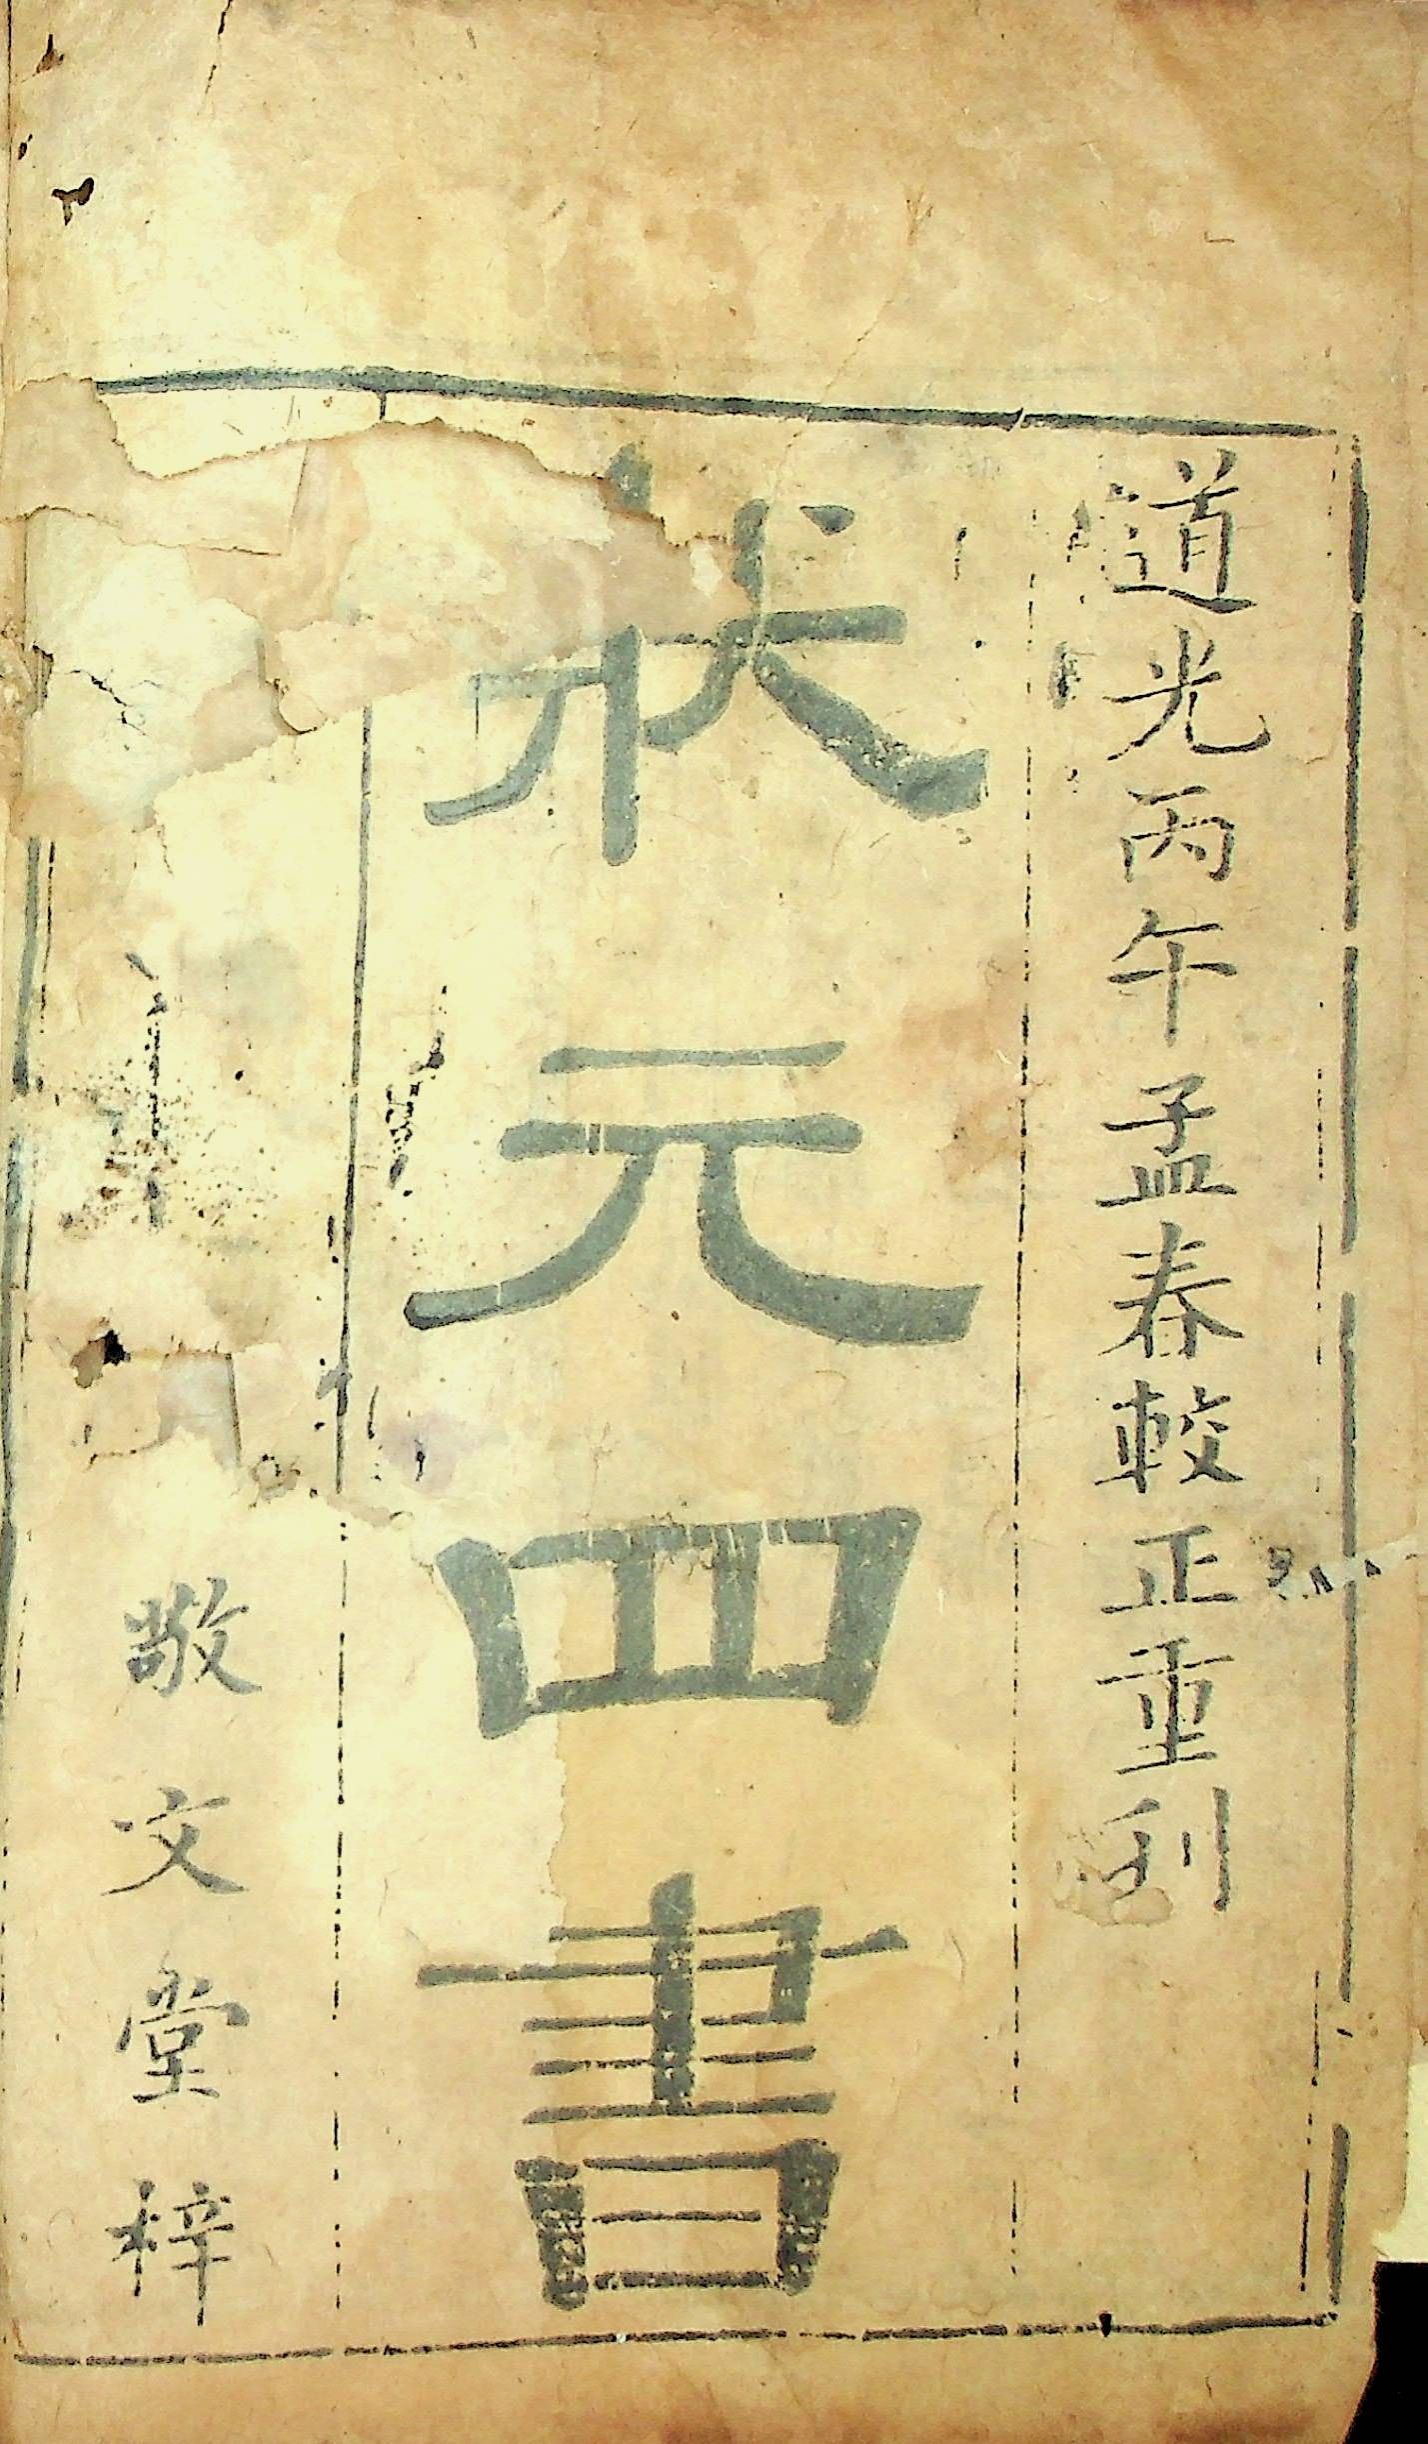 道光丙午孟春較正重刊
狀元四書
敬文堂梓